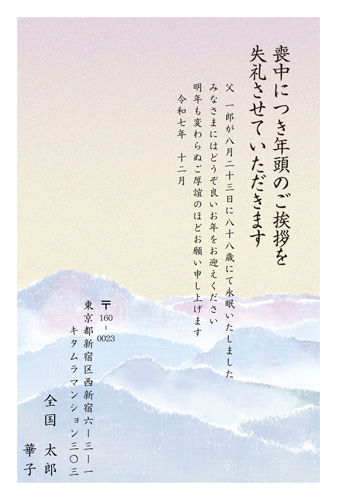 喪中につき年頭のご挨拶を
失礼させていただきます
父 一郎が八月二十三日に八十八歳にて永眠いたしました
みなさまにはどうぞ良いお年をお迎えください
明年も変わらぬご厚誼のほどお願い申し上げます
令和七年 十二月
〒160-0023
東京都新宿区西新宿六ー三ー一
キタムラマンション三〇三
全国 太郎
華子